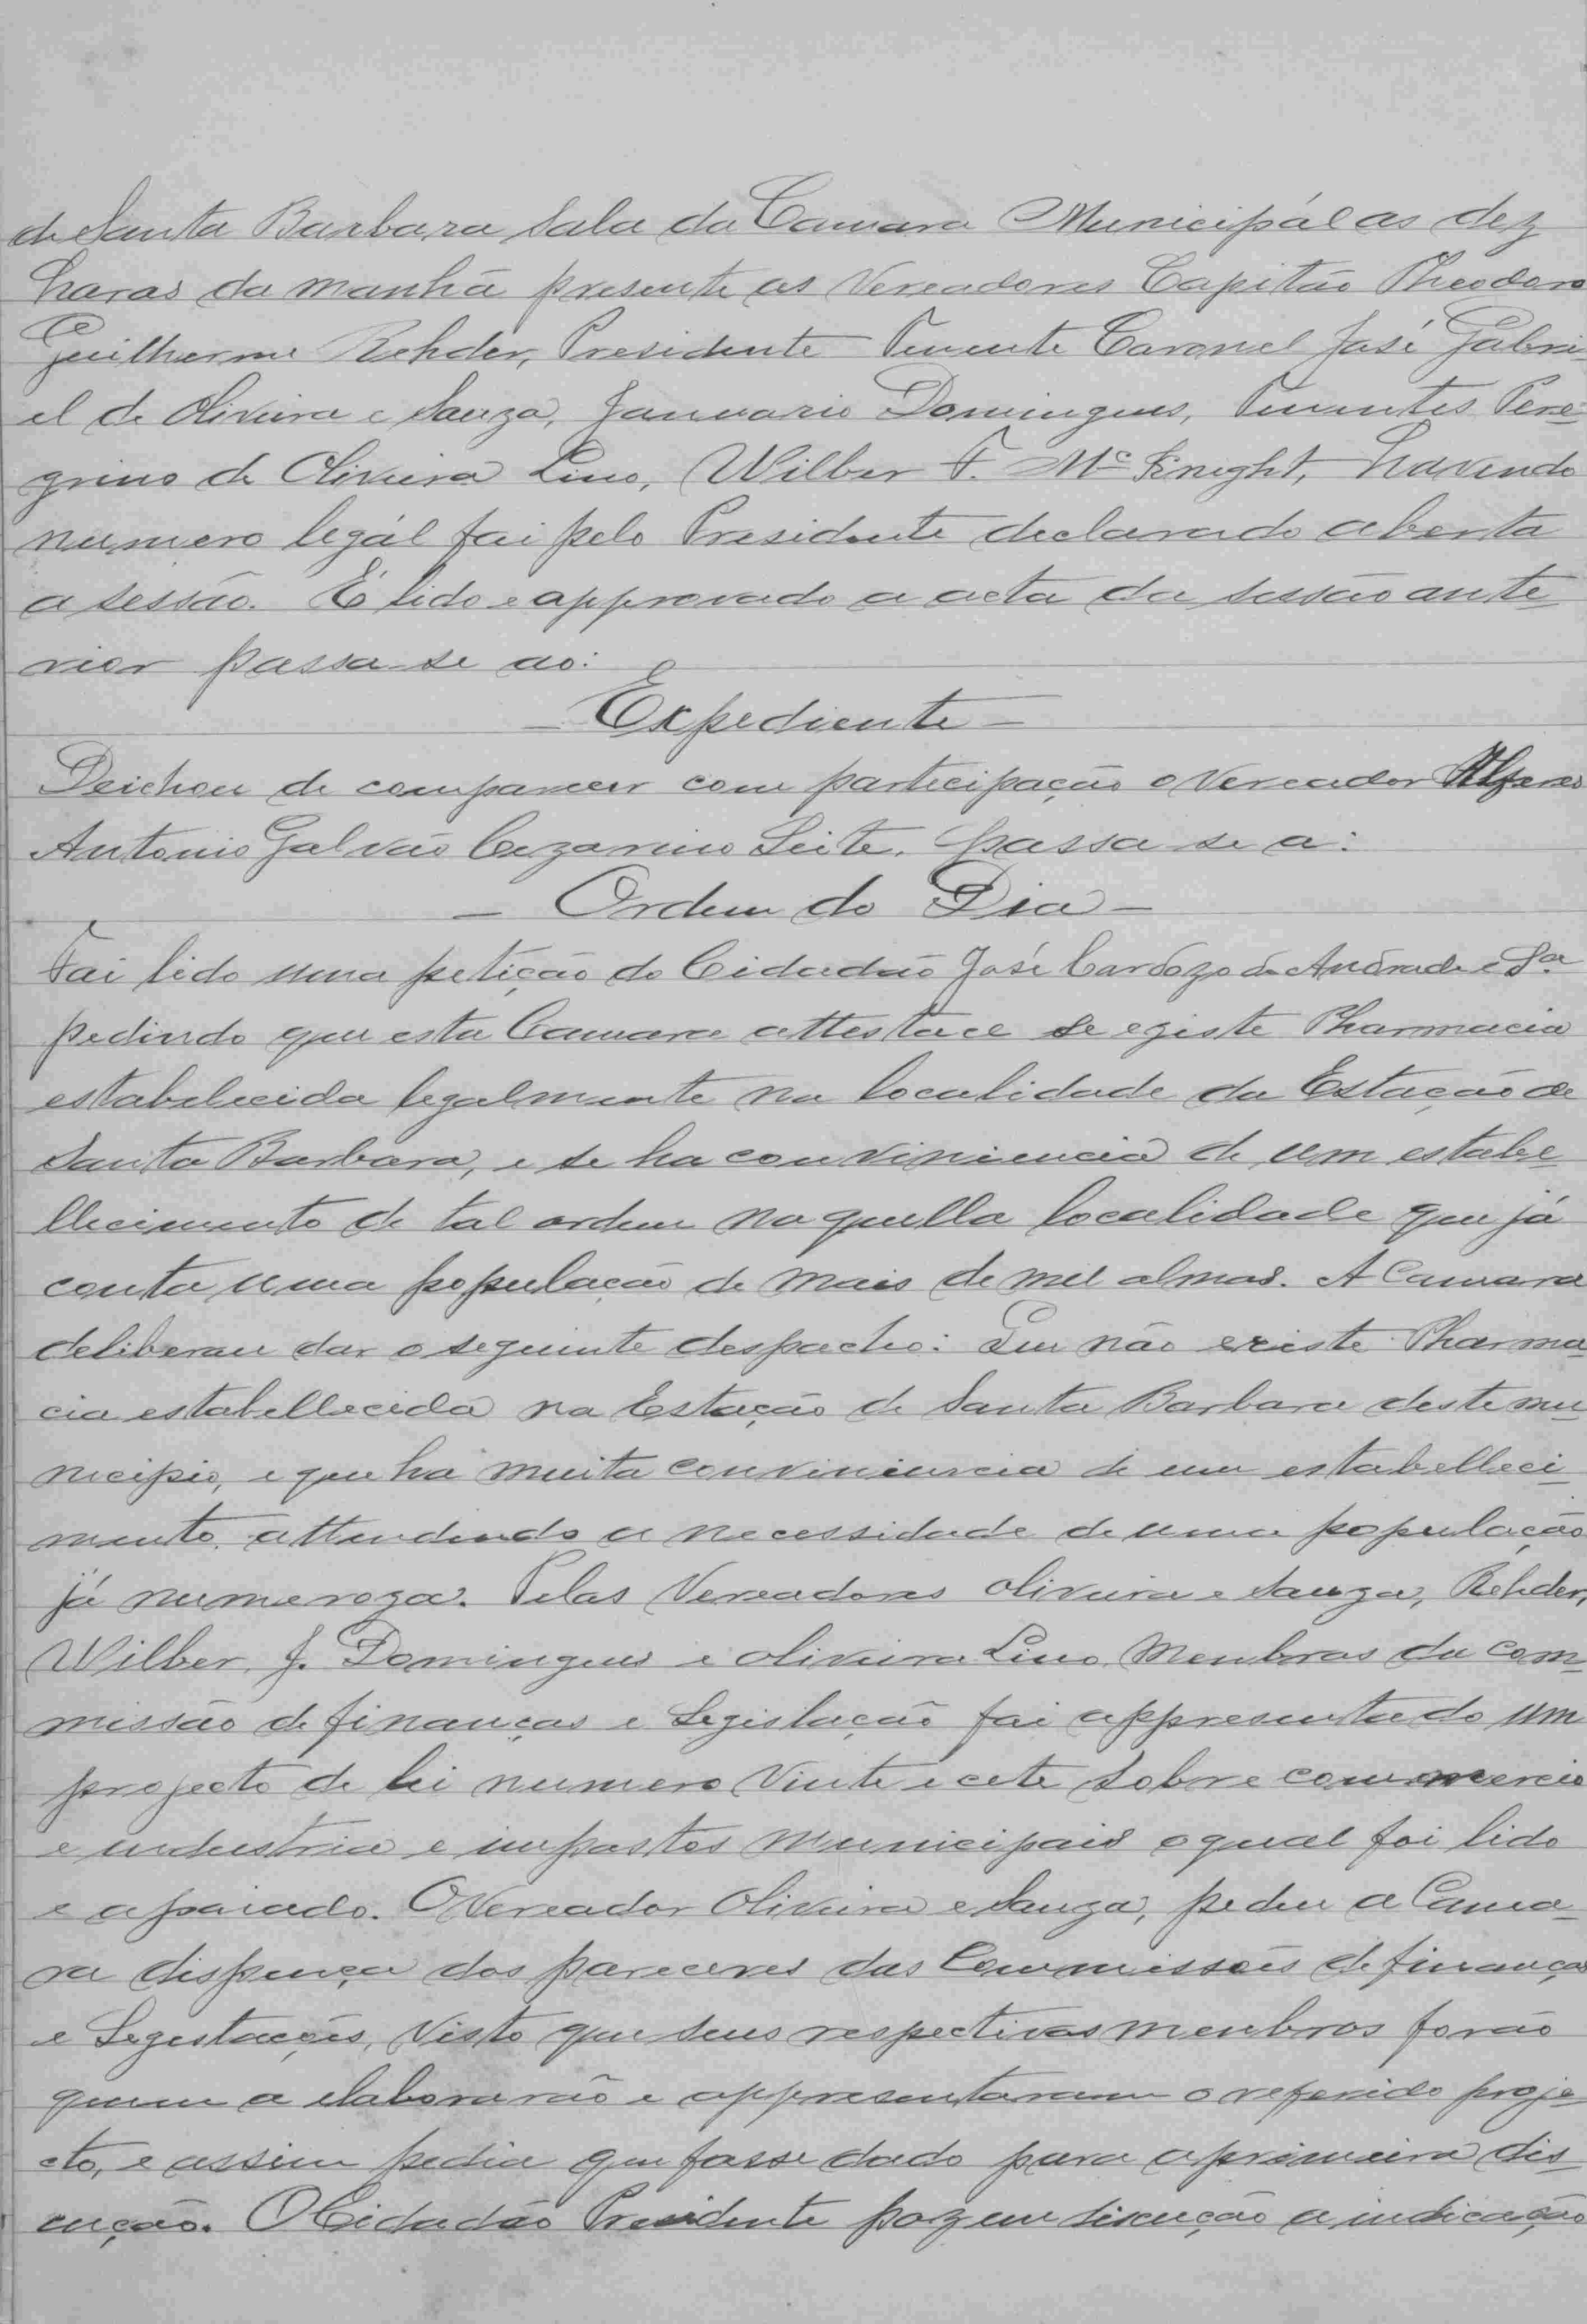 de Santa Barbara Sala da Camara Municipál as dez
horas da manhã presente os Vereadores Capitão Theodoro
Guilherme Rehder, Presidente Tenente Coronel José Gabri
el de Oliveira e Souza, Januario Domingues, Tenentes Pere=
grino de Oliveira Lino, Wilber F. Mc Knight, Havendo
numero legál foi pelo Presidente declarado aberta
a sessão. É lido e approvado a acta da sessão ante
rior passa-se ao:
— Expediente —
Deichou de comparecer com participação o Vereador Alferes
Antonio Galvão Cezarino Leite. passa se a:
— Ordem do Dia —
Foi lido uma petição do Cidadão José Cardozo de Andrade e Sa
pedindo que esta Camara attestace se egiste Pharmacia
estabelecida legalmente na localidade da Estação de
Santa Barbara, e se ha conviniencia de um estabe
llecimento de tal ordem naquella localidade que já
conta uma população de mais de mil almas. A Camara
deliberou dar o seguinte despacho: Que não existe Pharma
cia estabellecida na Estação de Santa Barbara deste mu
nicipio, e que ha muita conviniencia de um estabelleci
mento attendendo a necessidade de uma população
já numeroza. Pelos Vereadores Oliveira e Souza, Rehder,
Wilber, J. Domingues e Oliveira Lino, Menbros da com
missão de finanças e Legislação foi appresentado um
projecto de lei numero Vinte e cete Sobre commercio
e industria e impostos Municipais o qual foi lido
e apoiado. O Vereador Oliveira e Souza, pedeu a Cama
ra dispença dos pareceres das Commissões de finanças
e Legestações, Visto que seus respectivos menbros forão
quem a elaborarão e appresentaram o referido proje
cto, e assim pedia que fosse dado para a primeira dis
cução. O Cidadão Presidente poz em discução a indicação